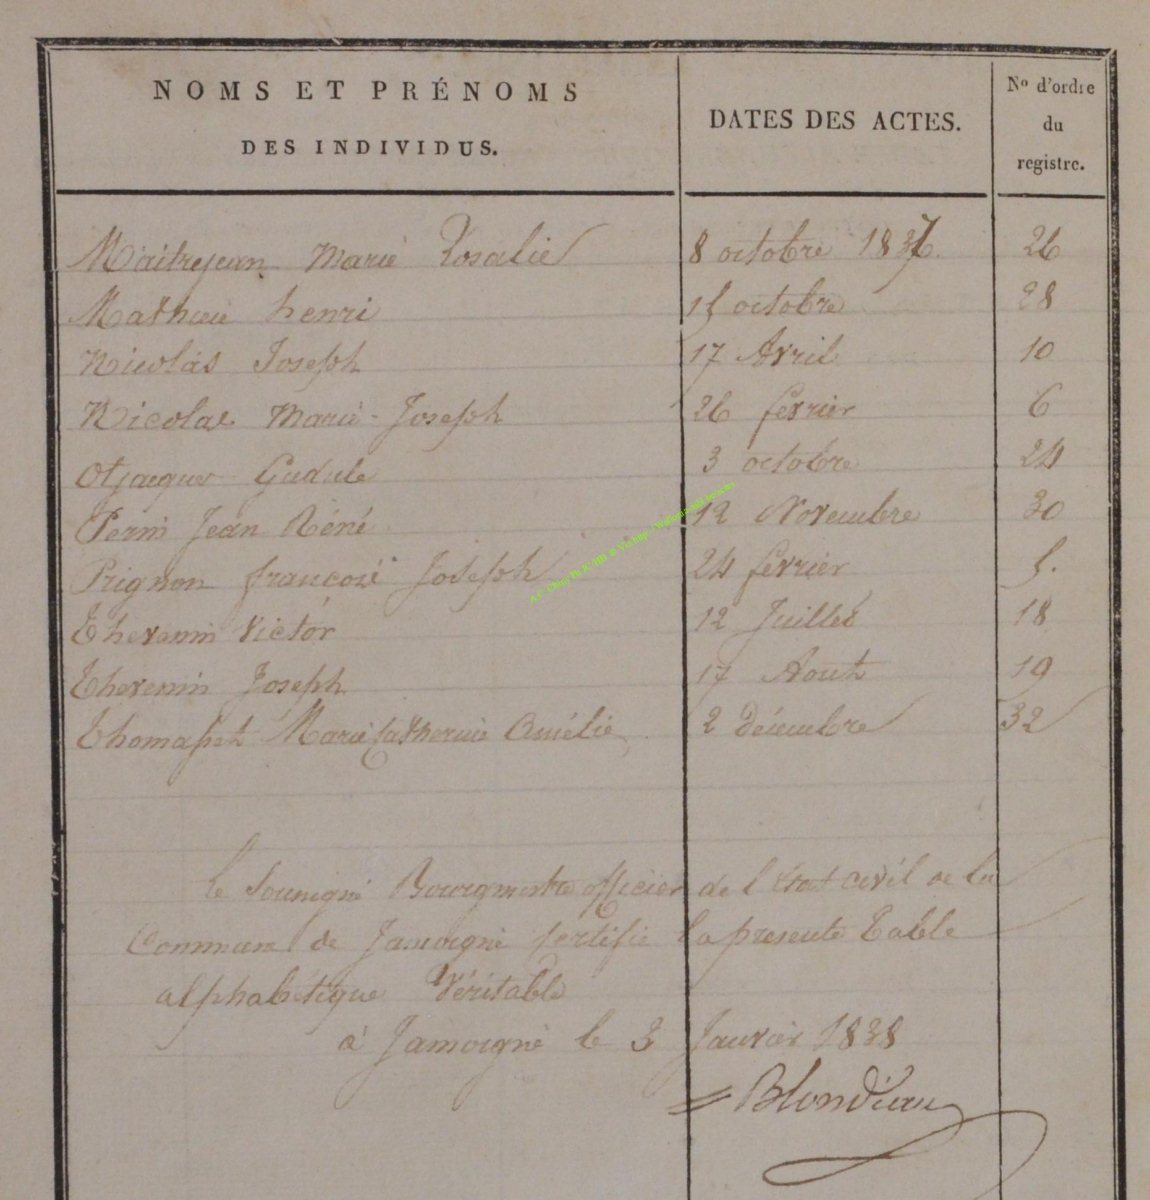 NOMS ET PRÉNOMS
DES INDIVIDUS.
DATES DES ACTES.
No d'ordre
du
registre.
Maitrejean Marie Rosalie 8 octobre 1837. 26
Mathieu henri 15 octobre 28
Nicolas Joseph 17 Avril 10
Nicolas Marie-Joseph 26 fevrier 6
Otjacques Gudule 3 octobre 24
Perin Jean Réné 12 Novembre 30
Prignon françois Joseph 24 fevrier 5.
Thevenin Victor 12 Juillet 18
Thevenin Joseph 17 Aout 19
Thomasset Marie Catherine Amélie 2 Décembre 32
le Bourgmestre officier de l'état civil de la
Commune de Jamoigne certifie la presente Table
alphabétique Véritable
à Jamoigne le 3 Janvier 1838
Blondiau